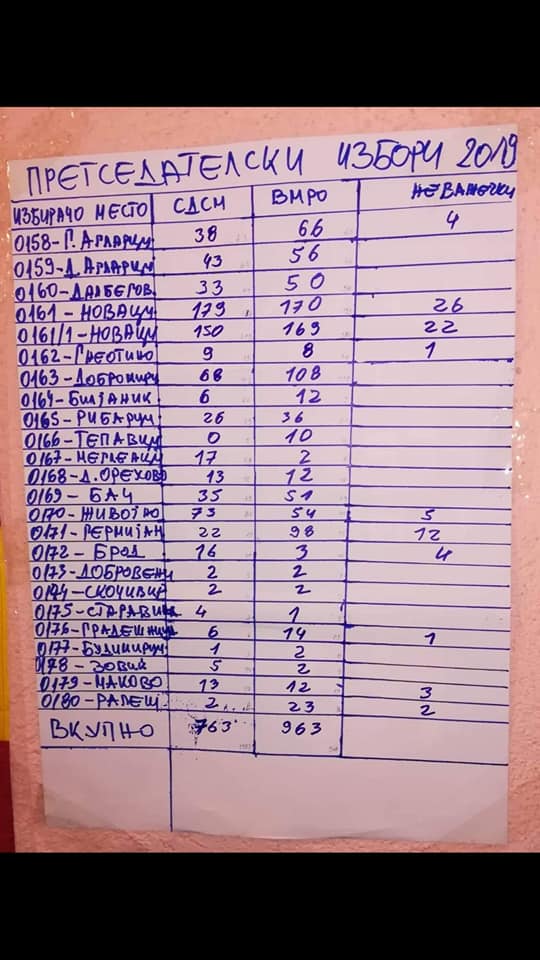 ПРЕТСЕДАТЕЛСКИ ИЗБОРИ 2019
ИЗБИРАЧО МЕСТО СДСМ ВМРО НЕВАЖЕЧКИ
0158-Г. АГЛАРЦИ 38 66 4
0159-Д. АГЛАРЦИ 43 56
0160-ДАЛБЕГОВ 33 50
0161-НОВАЦИ 179 170 26
0161/1-НОВАЦИ 150 169 22
0162-ГНЕОТИНО 9 8 1
0163-ДОБРОМИРИ 68 108
0164-БИЛЈАНИК 6 12
0165-РИБАРЦИ 26 36
0166-ТЕПАВЦИ 0 10
0167-МЕГЛЕНЦИ 17 2
0168-Д. ОРЕХОВО 13 12
0169-БАЧ 35 51
0170-ЖИВОЈНО 73 54 5
0171-ГЕРМИЈАН 22 98 12
0172-БРОД 16 3 4
0173-ДОБРОВЕНИ 2 2
0174-СКОЧИВИР 2 2
0175-СТАРАВИНА 4 1
0176-ГРАДЕШНИЦА 6 14 1
0177-БУДИМИРЦИ 1 2
0178-ЗОВИЌ 5 2
0179-МАКОВО 13 12 3
0180-РАПЕШ 2 23 2
ВКУПНО 763 963